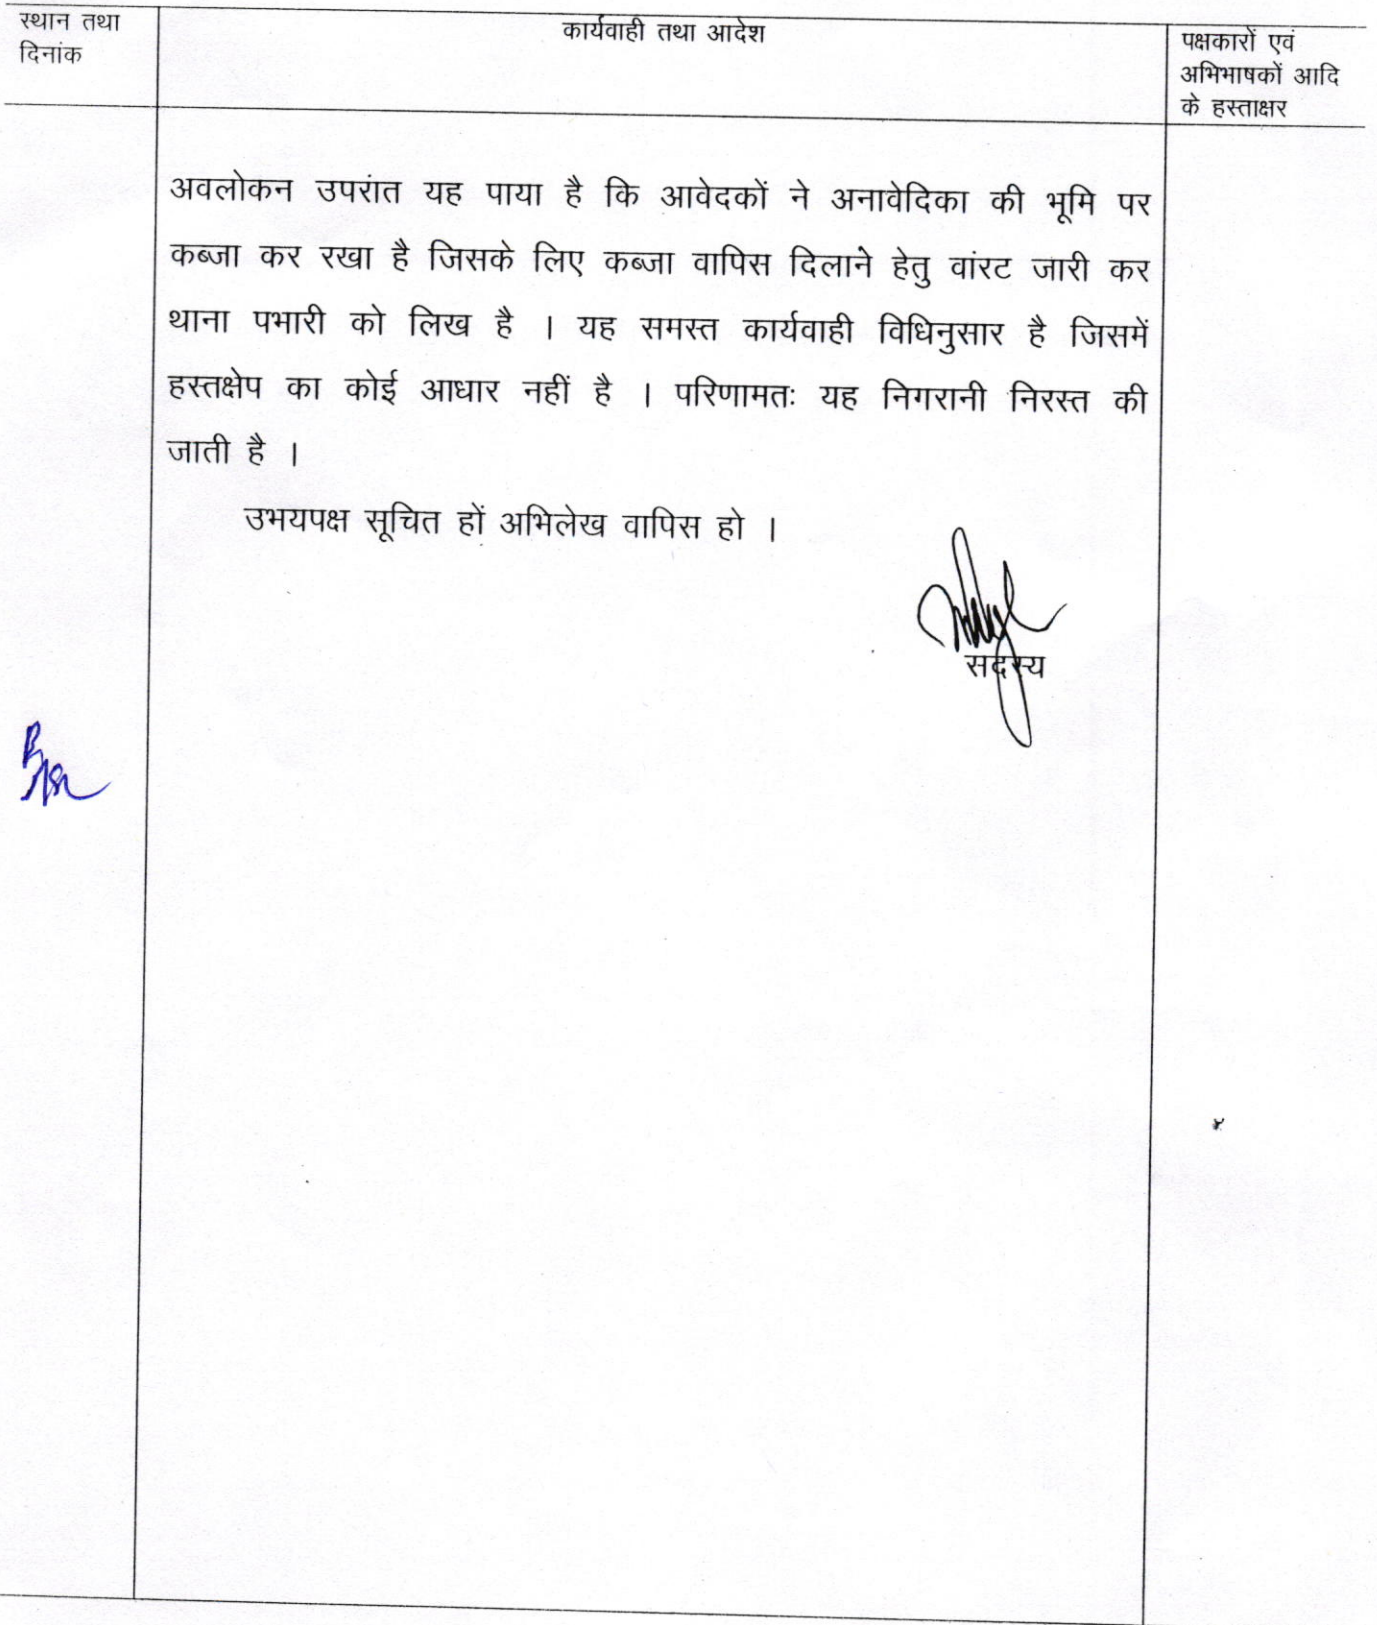 स्थान तथा
दिनांक
कार्यवाही तथा आदेश
पक्षकारों एवं
अभिभाषकों आदि
के हस्ताक्षर
अवलोकन उपरांत यह पाया है कि आवेदकों ने अनावेदिका की भूमि पर
कब्जा कर रखा है जिसके लिए कब्जा वापिस दिलाने हेतु वांरट जारी कर
थाना पभारी को लिख है । यह समस्त कार्यवाही विधिनुसार है जिसमें
हस्तक्षेप का कोई आधार नहीं है । परिणामतः यह निगरानी निरस्त की
जाती है ।
उभयपक्ष सूचित हों अभिलेख वापिस हो ।
सदस्य